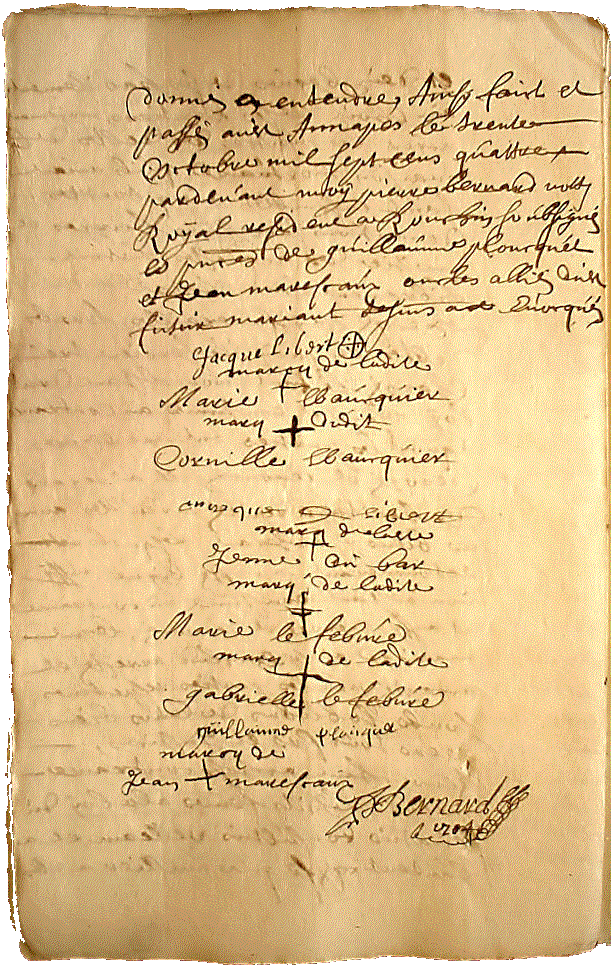 donné a entendre, Ainsy faict et
passé audit Annapes le trente
Octobre mil sept cens quattre
pardevant moy pierre bernard nott
Royal resident a Ronchin soubsigné
es pnces de guillaume ploucquet
et Jean marescaux oncles alliés dudit
futur mariant dessus
Jacque Libert
marcq de ladite
Marie Wauquier
marcq dudit
Cornille Wauquier
Libert
marcq de ladite
Jenne du bar
marcq de ladite
Marie le febure
marcq de ladite
gabrielle le febure
guillaume plouque
marcq de
Jean marescaux
Bernard
1704